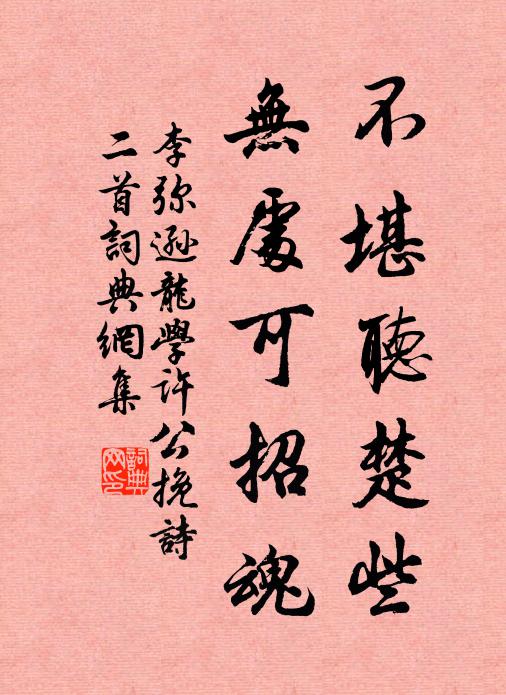 不堪聽楚些
無處可招魂
李弥遜龍學許公挽詩
二首詞典網集
詞典网印